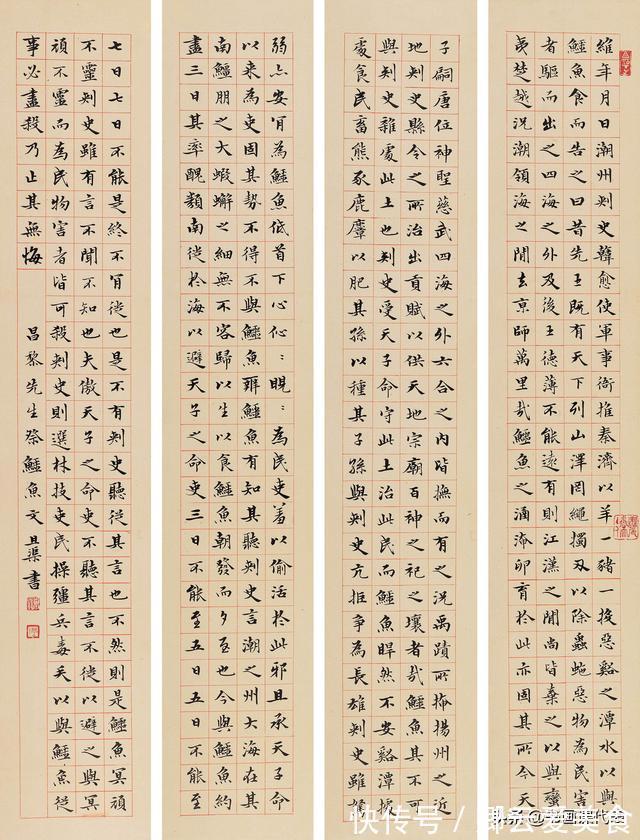 維年月日潮州刾史韓愈使軍事衙推秦濟以羊一豬一投惡谿之潭水以與
鱷魚食而告之曰昔先王既有天下列山澤罔繩擉刃以除蟲虵惡物為民害
者驅而出之四海之外及後王德薄不能遠有則江漢之間尚皆棄之以與蠻
夷楚越況潮領海之間去京師萬里哉鱷魚之涵淹卵育於此亦固其所今天
子嗣唐位神聖慈武四海之外六合之內皆撫而有之況禹蹟所揜揚州之近
地刾史縣令之所治出貢賦以供天地宗廟百神之祀之壤者哉鱷魚其不可
與刾史雜處此土也刾史受天子命守此土治此民而鱷魚睅然不安谿潭據
處食民畜熊豕鹿麞以肥其孫以種其子孫與刾史亢拒爭為長雄刾史雖駑
弱亦安肯為鱷魚低首下心伈〻睍〻為民吏羞以偷活於此邪且承天子命
以来為吏固其勢不得不與鱷魚辨鱷魚有知其聽刾史言潮之州大海在其
南鱷朋之大蝦蠏之細無不容歸以生以食鱷魚朝發而夕至也今與鱷魚約
盡三日其率醜類南徙於海以避天子之命吏三日不能至五日五日不能至
七日七日不能是終不肯徙也是不有刾史聽從其言也不然則是鱷魚冥頑
不靈刾史雖有言不聞不知也夫傲天子之命吏不聽其言不徙以避之與冥
頑不靈而為民物害者皆可殺刾史則選材技吏民操彊兵毒矢以與鱷魚從
事必盡殺乃止其無悔
昌黎先生祭鱷魚文且渠書
快传号/卿云爱美食